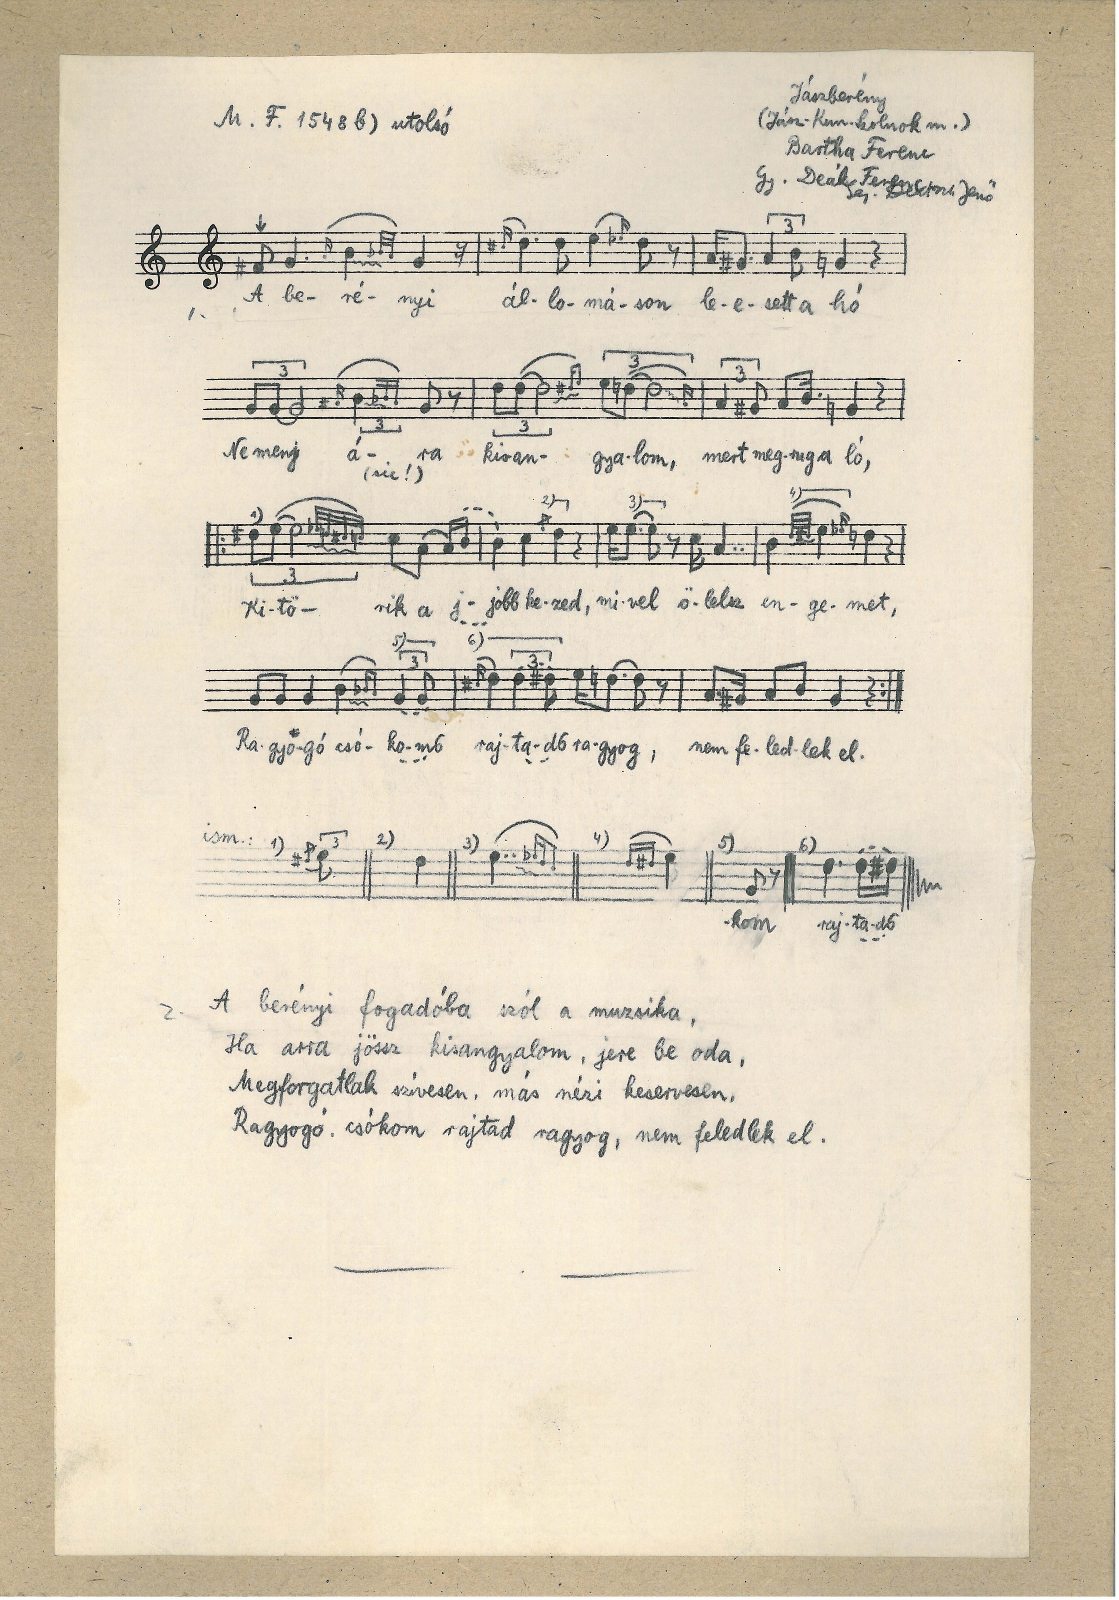 M. F. 1548 b) utolsó
Jászberény
(Jász-Kun-Szolnok m.)
Bartha Ferenc
Gy. Deák Jenő
3
1. A be- ré- nyi ál- lo- má- son le- e- sett a hó
3 3 3 3 3
Ne menj á- ra kisan- gya-lom, mert meg-rug a ló,
(sic!)
1) 2) 3) 4)
3
Ki-tö- rik a j- jobb ke-zed, mi-vel ö-lelsz en- ge- met,
5) 6)
3 3
Ra-gyo-gó csó- ko-mó raj-ta-dó ra-gyog, nem fe-led-lek el.
ism.: 1) 3 2) 3) 4) 5) 6)
-kom raj-ta-dó
2. A berényi fogadóba szól a muzsika,
Ha arra jössz kisangyalom, jere be oda,
Megforgatlak szívesen, más nézi keservesen,
Ragyogó csókom rajtad ragyog, nem feledlek el.